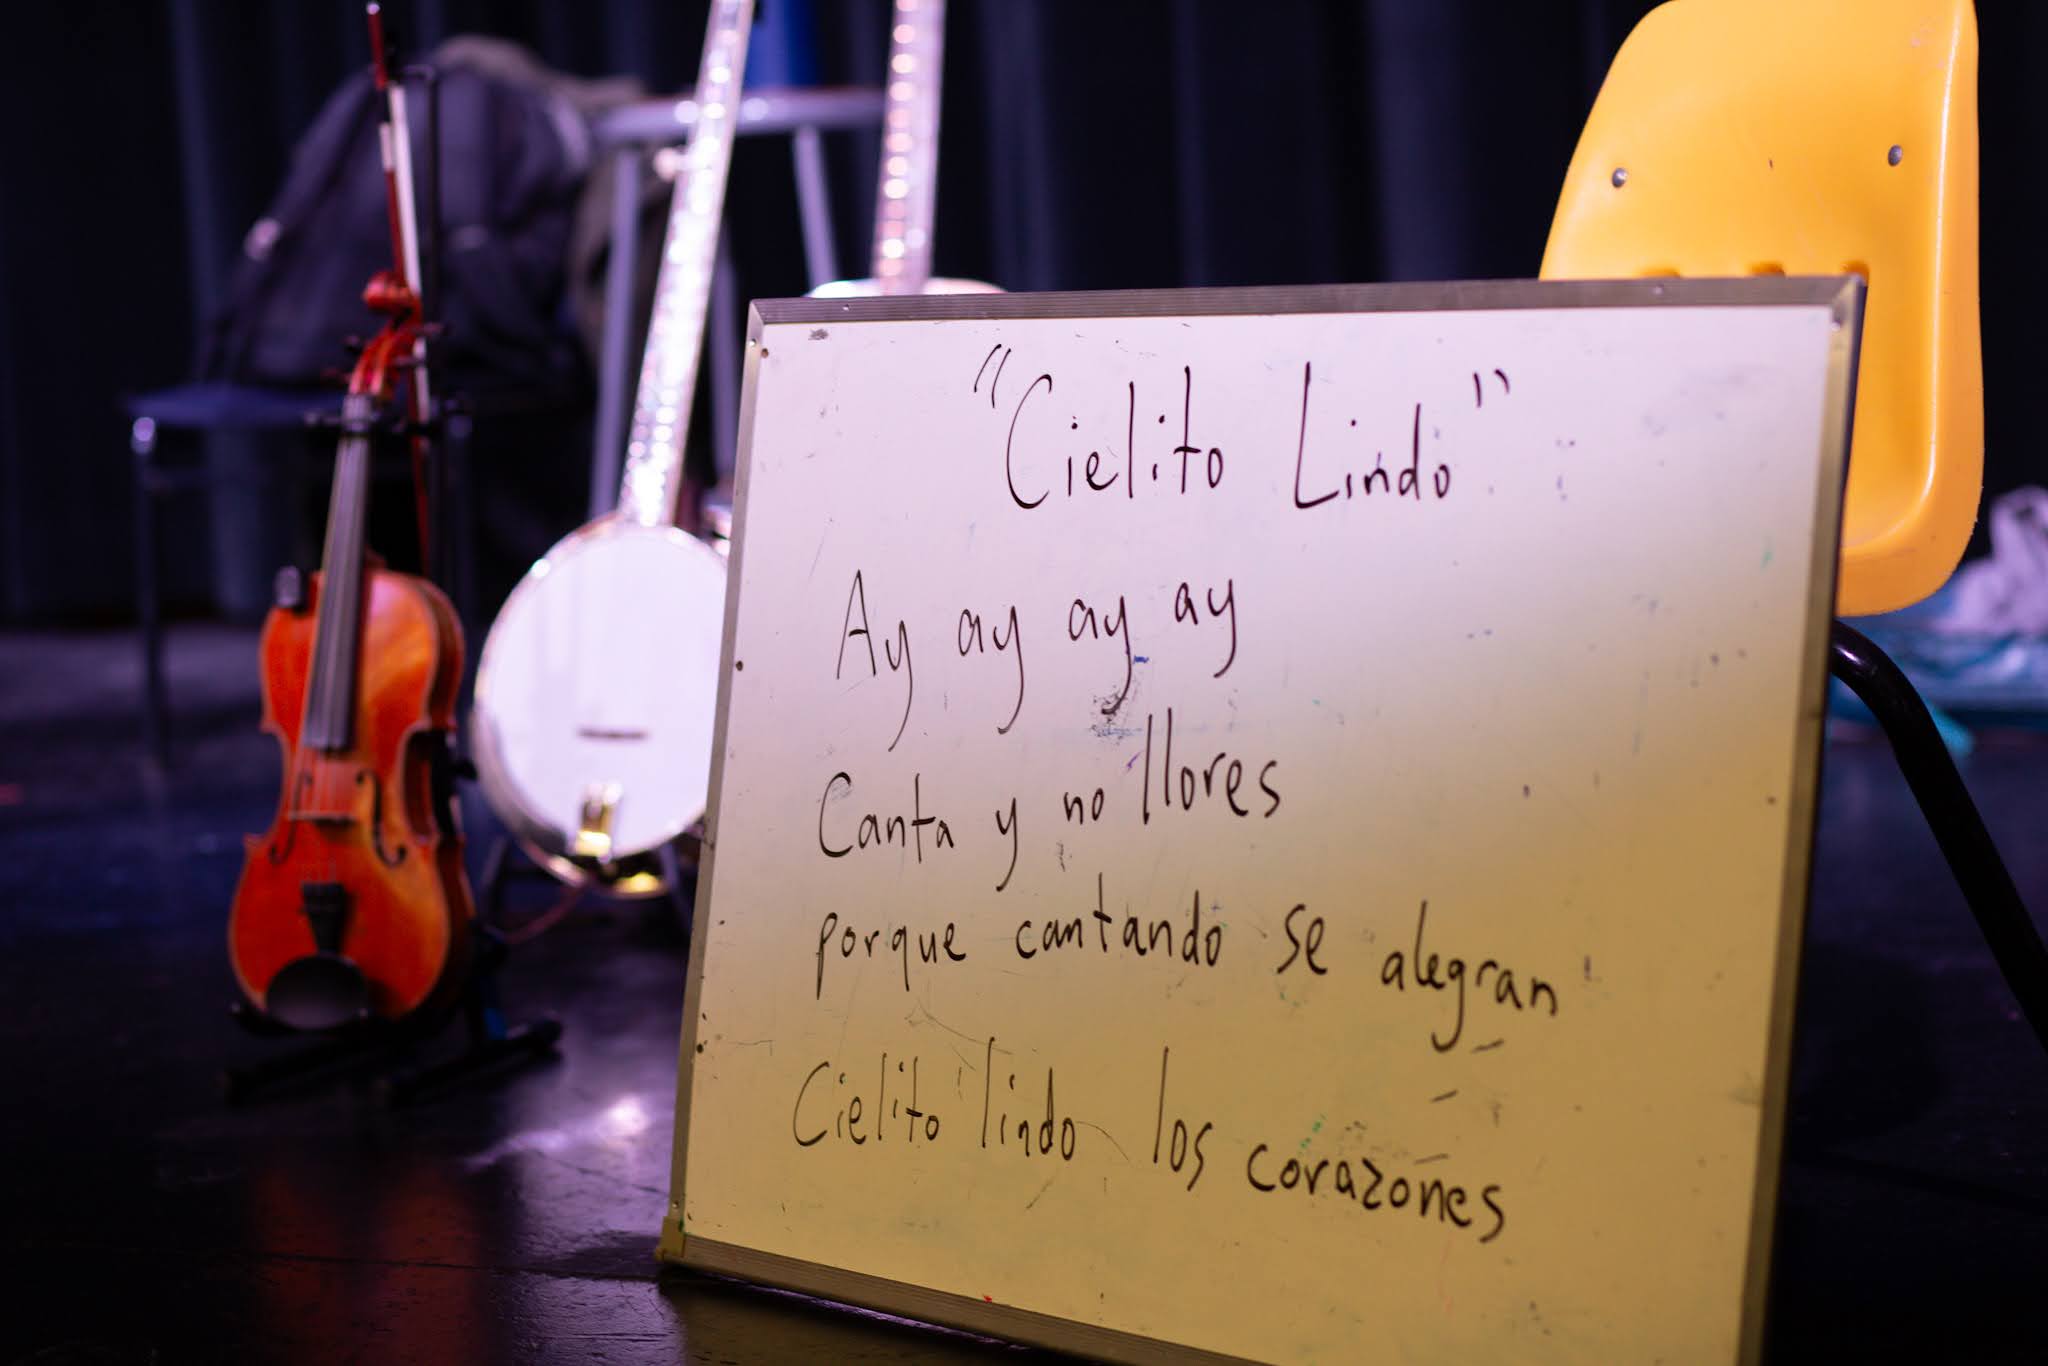 "Cielito Lindo"
Ay ay ay ay
Canta y no llores
porque cantando se alegran
Cielito lindo los corazones